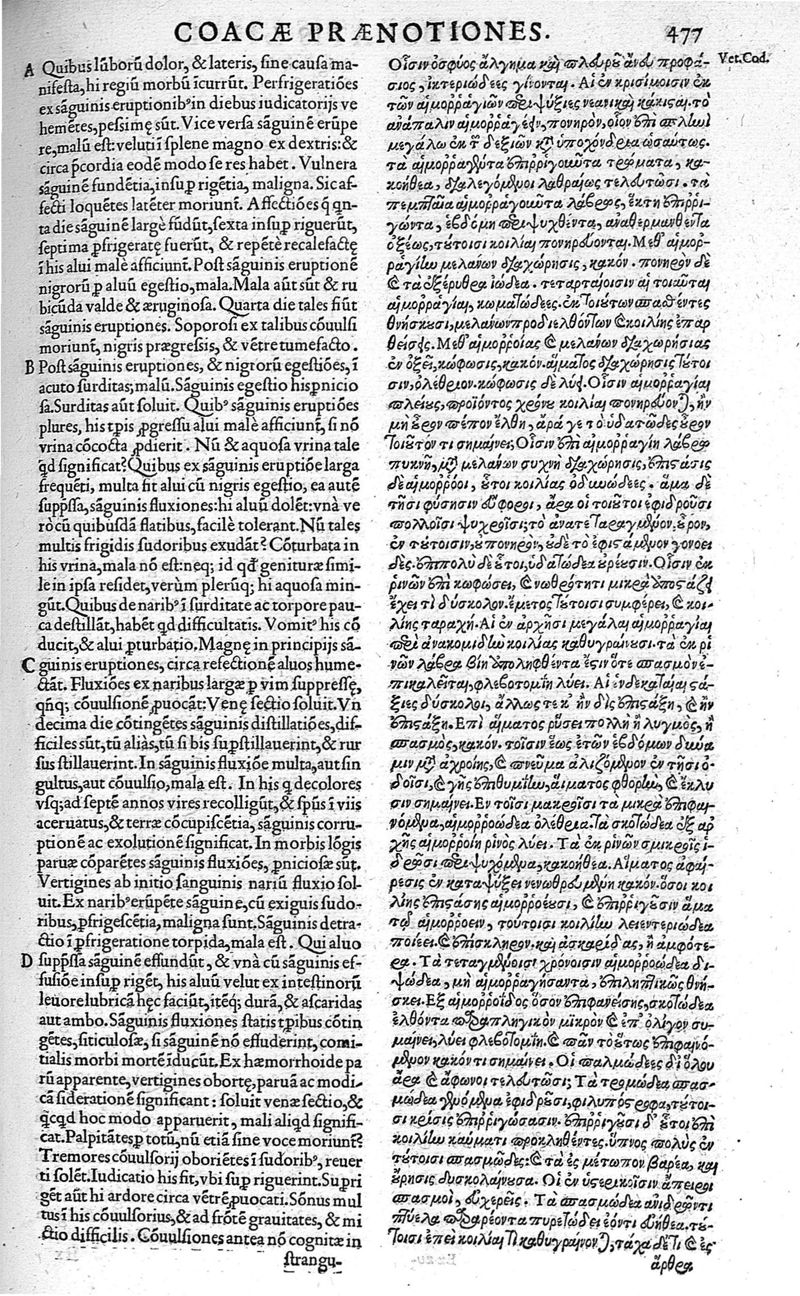 COACÆ PRÆNOTIONES.
477
A Quibus lũborũ dolor, & lateris, sine causa ma-
nifesta, hi regiũ morbũ ĩcurrũt. Perfrigeratiões
ex sãguinis eruptionibꝰ in diebus iudicatorijs ve
hemẽtes, pessimę sũt. Vice versa sãguinẽ erũpe
re, malũ est: velutì ĩ splene magno ex dextris: &
circa p̃cordia eodẽ modo se res habet. Vulnera
sãguinẽ fundẽtia, insuꝑ rigẽtia, maligna. Sic af-
fecti loquẽtes latẽter moriunt. Affectiões q̃ qn-
ta die sãguinẽ largè fũdũt, sexta insuꝑ riguerũt,
septima ꝑfrigeratę fuerũt, & repẽtè recalefactę
ĩ his alui malè afficiunt. Post sãguinis eruptionẽ
nigrorũ ꝑ aluũ egestio, mala. Mala aũt sũt & ru
bicũda valde & æruginosa. Quarta die tales fiũt
sãguinis eruptiones. Soporosi ex talibus cõuulsi
moriunt, nigris prægressis, & vẽtre tumefacto.
B Post sãguinis eruptiones, & nigrorũ egestiões, ĩ
acuto surditas; malũ. Sãguinis egestio his ꝑnicio
sa. Surditas aũt soluit. Quibꝰ sãguinis eruptiões
plures, his tꝑis ꝓgressu alui malè afficiunt, si nõ
vrina cõcocta ꝓdierit. Nũ & aquosa vrina tale
qd significat? Quibus ex sãguinis eruptiõe larga
frequẽti, multa fit alui cũ nigris egestio, ea autẽ
supp̃ssa, sãguinis fluxiones: hi aluũ dolẽt: vnà ve
rò cũ quibusdã flatibus, facilè tolerant. Nũ tales
multis frigidis sudoribus exudãt? Cõturbata in
his vrina, mala nõ est: neq; id qd genituræ simi-
le in ipsa residet, verùm plerũq; hi aquosa min-
gũt. Quibus de naribꝰ ĩ surditate ac torpore pau-
ca destillãt, habẽt qd difficultatis. Vomitꝰ his cõ
ducit, & alui ꝑturbatio. Magnę in principijs sã-
C guinis eruptiones, circa refectionẽ aluos hume-
ctãt. Fluxiões ex naribus largæ ꝑ vim suppressę,
qñq; cõuulsionẽ ꝓuocãt: Venę sectio soluit. Vn
decima die cõtingẽtes sãguinis distillatiões, dif-
ficiles sũt, tũ aliàs, tũ si bis suꝑstillauerint, & rur
sus stillauerint. In sãguinis fluxiõe multa, aut sin
gultus, aut cõuulsio, mala est. In his q decolores
vsq; ad septẽ annos vires recolligũt, & spũs ĩ viis
aceruatus, & terræ cõcupiscẽtia, sãguinis corru-
ptionẽ ac exolutionẽ significat. In morbis lõgis
paruæ cõparẽtes sãguinis fluxiões, ꝑniciosæ sũt.
Vertigines ab initio sanguinis nariũ fluxio sol-
uit. Ex naribꝰ erũpẽte sãguine, cũ exiguis sudo-
ribus, ꝑfrigescẽtia, maligna sunt. Sãguinis detra-
ctio ĩ ꝑfrigeratione torpida, mala est. Qui aluo
D supp̃ssa sãguinẽ effundũt, & vnà cũ sãguinis ef-
fusiõe insuꝑ rigẽt, his aluũ velut ex intestinorũ
leuore lubricã hęc faciũt, itẽq; durã, & ascaridas
aut ambo. Sãguinis fluxiones statis tꝑibus cõtin
gẽtes, siticulosæ, si sãguinẽ nõ effuderint, comi-
tialis morbi mortẽ ĩducũt. Ex hæmorrhoide pa
rũ apparente, vertigines obortę, paruã ac modi-
cã siderationẽ significant: soluit venæ sectio, &
qcqd hoc modo apparuerit, mali aliqd signifi-
cat. Palpitãtes ꝑ totũ, nũ etiã sine voce moriunt?
Tremores cõuulsorij oboriẽtes ĩ sudoribꝰ, reuer
ti solẽt. Iudicatio his fit, vbi suꝑ riguerint. Suꝑri
gẽt aũt hi ardore circa vẽtrẽ ꝓuocati. Sõnus mul
tus ĩ his cõuulsorius, & ad frõtẽ grauitates, & mi
ctio difficilis. Cõuulsiones antea nõ cognitæ in
strangu-
Οἷσιν ὀσφύος ἄλγημα καὶ πλευρῆ ἄνευ προφά-
Vet. Cod.
σιος, ἰκτεριώδεες γίνονται. Αἱ ἐν κρισίμοισιν ἐκ
τῶν αἱμορραγιῶν περιψύξιες νεανικαὶ κάκισαι. τὸ
ἀνάπαλιν αἱμορραγέην, πονηρὸν, οἷον ἐπὶ σπλίωι
μεγάλω ἐκ τ δεξιῶν κτ ὑποχόνδρια ὡσαύτως.
τὰ αἱμορραγεῦντα ἐπιρριγοῦντα τρώματα, κα-
κοήθεα, διαλεγόμενοι λαθραίως τελευτῶσι. τὰ
πεμπταῖα αἱμορραγοῦντα λάβρως, ἕκτη ἐπιρρι-
γῶντα, ἑβδόμη περιψυχθέντα, ἀναθερμανθέντα
ὀξέως, τούτοισι κοιλίαι πονηρεύονται. Μεθ᾽ αἱμορ-
ραγίων μελάνων διαχώρησις, κακόν. πονηρὸν δὲ
ϗ τὰ ἐξέρυθρα ἰώδεα. τεταρταίοισιν αἱ τοιαῦται
αἱμορραγίαι, κωματώδεες. ἐκ τούτων σπασθέντες
θνήσκουσι, μελάνων προδιελθόντων ϗ κοιλίης ἐπαρ
θείσης. Μεθ᾽ αἱμορροίας ϗ μελάνων διαχωρήσιας
ἐν ὀξεῖ, κώφωσις, κακόν. αἵματος διαχώρησις τούτοι
σιν, ὀλέθριον. κώφωσις δὲ λύει. Οἷσιν αἱμορραγίαι
πλείους, προϊόντος χρόνου κοιλίαι πονηρεύονται, ἢν
μὴ οὖρον πέπον ἔλθη, ἆρά γε τὸ ὑδατῶδες οὖρον
τοιοῦτόν τι σημαίνει; Οἷσιν ἐπὶ αἱμορραγίη λάβρω
πυκνῆ, μετὰ μελάνων συχνὴ διαχώρησις, ἐπιστάσις
δὲ αἱμόρροοι, οὗτοι κοιλίας ὀδυνώδεες. ἅμα δὲ
τῇσι φύσησιν εὔφοροι, ἆρα οἱ τοιοῦτοι ἐφιδροῦσι
πολλοῖσι ψυχροῖσι; τὸ ἀνατεταραγμένον οὖρον,
ἐν τούτοισιν, οὐ πονηρὸν, οὐδὲ τὸ ἐφιστάμενον γονοει
δές. ἐπιπολὺ δὲ οὗτοι, ὑδατώδεα οὐρέουσιν. Οἷσιν ἐκ
ῥινῶν ἐπὶ κωφώσει, ϗ νωθρότητι μικρὰ ἀποστάζει
ἔχει τὶ δύσκολον. ἔμετος τούτοισι συμφέρει, ϗ κοι-
λίης ταραχή. Αἱ ἐν ἀρχῆσι μεγάλαι αἱμορραγίαι
περὶ ἀνακομιδίω κοιλίας καθυγραίνουσι. τὰ ἐκ ῥι
νῶν λάβρα βίη ἀποληφθέντα ἔστιν ὅτε σπασμὸν ἐ-
πικαλεῖται, φλεβοτομίη λύει. Αἱ ἑνδεκαταῖαι στά-
ξιες δύσκολοι, ἄλλως τε κ ἢν δὶς ἐπιστάξη, ϗ ἢν
ἐπιστάξη. Ἐπὶ αἵματος ῥύσει πολλῆ ἢ λυγμὸς, ἢ
σπασμὸς, κακόν. τοῖσιν ἕως ἐτῶν ἑβδόμων δυνά
μιν μετὰ ἀχροίης, ϗ πνεῦμα ἁλιζόμενον ἐν τῆσι ὁ-
δοῖσι, ϗ γῆς ἐπιθυμίω, αἵματος φθορὰν, ϗ ἔκλυ
σιν σημαίνει. Ἐν τοῖσι μακροῖσι τὰ μικρὰ ἐπιφαι-
νόμενα, αἱμορροώδεα ὀλέθρια. Τὰ σκοτώδεα ἐξ ἀρ
χῆς αἱμορροίη ῥινὸς λύει. Τὰ ἐκ ῥινῶν σμικροῖς ἱ-
δρῶσι περιψυχόμενα, κακοήθεα. Αἵματος ἀφαί-
ρεσις ἐν καταψύξει νενωθρευμένη κακόν. ὅσοι κοι
λίης ἐπιστάσης αἱμορροέουσι, ϗ ἐπιρριγοῦσιν ἅμα
τῷ αἱμορροεῖν, τούτοισι κοιλίω λειεντεριώδεα
ποιέει. ϗ ἐπίσκληρον, καὶ ἀσκαρίδας, ἢ ἀμφότε-
ρα. Τὰ τεταγμένοισι χρόνοισιν αἱμορροώδεα δι-
ψώδεα, μὴ αἱμορραγήσαντα, ἐπιληπτικῶς θνή-
σκει. Ἐξ αἱμορροΐδος ὅσον ἐπιφανείσης, σκοτώδεα
ἐλθόντα παραπληγικὸν μικρὸν ϗ ἐπ᾽ ὀλίγον ση-
μαίνει, λύει φλεβοτομίη. ϗ πᾶν τὸ οὕτως ἐπιφαινό-
μενον κακόν τι σημαίνει. Οἱ παλμώδεες δι᾽ ὅλου
ἆρα ϗ ἄφωνοι τελευτῶσι; Τὰ τρομώδεα σπασ-
μώδεα γενόμενα ἐφιδρῶσι, φιλυπόστροφα, τούτοι-
σι κρίσις ἐπιρριγώσασιν. ἐπιρριγοῦσι δ᾽ οὗτοι ἐπὶ
κοιλίω καύματι προκληθέντες. ὕπνος πολὺς ἐν
τούτοισι σπασμῶδες: ϗ τὰ ἐς μέτωπον βαρέα, καὶ
οὔρησις δυσκολαίνουσα. Οἱ ἐν ὑστερικοῖσιν ἄπειροι
σπασμοὶ, εὐχερεῖς. Τὰ σπασμώδεα ἀνιδρωτι
πτύελα παραρέοντα πυρετώδει ἐόντι εὐήθεα. τού-
τοισι ἐπεὶ κοιλίαι τι καθυγραίνονται, τάχα δέ τι ϗ ἐς
ἄρθρα